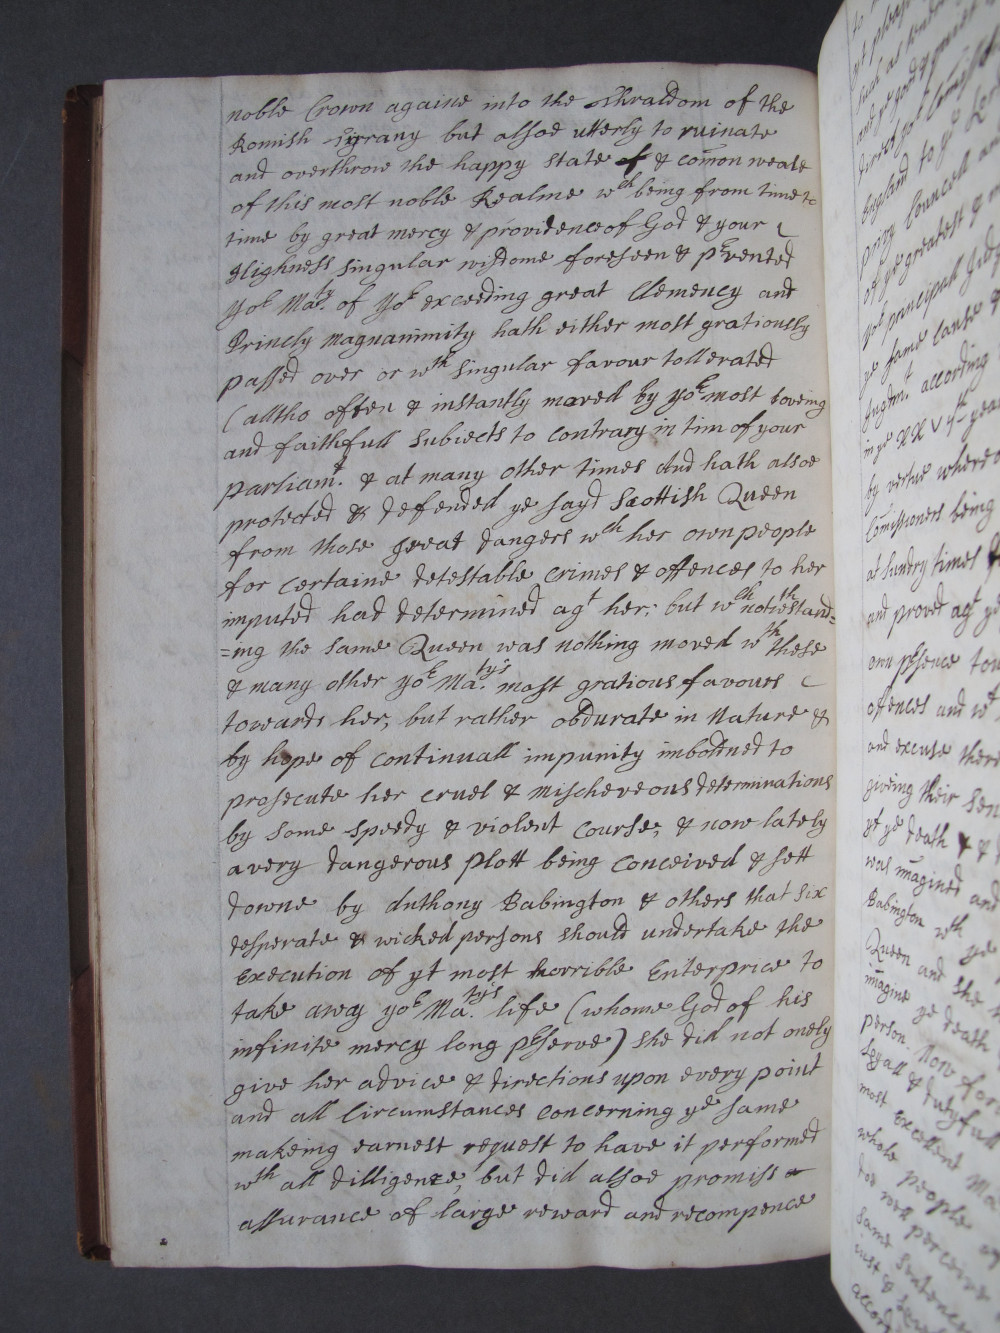 noble Crown againe into the thraldom of the
Romish Tyrany but alsoe utterly to ruinate
and overthrow the happy state & com̄on weale
of this most noble Realme wch being from time to
time by great mercy & providence of God & your
Highness singular wisdome foreseen & prvented
Yor Maty. of Yor exceeding great Clemency and
Princly Magnanimity hath either most gratiously
passed over or wth singular favour tollerated
(altho often & instantly moved by yor most loveing
and faithfull Subiects to contrary in tim of your
parliamt. & at many other times And hath alsoe
protected & defended ye sayd Scottish Queen
from those great dangers wch her own people
for certaine detestable Crimes & offences to her
imputed had determined agt her; but wch notwthstand=
=ing the same Queen was nothing moved wth these
& many other yor Matys. most gratious favours
towards her, but rather obdurate in Nature &
by hope of continuall impunity imboldned to
prosecute her cruel & mischeveous determinations
by some speedy & violent Course, & now lately
a very dangerous plott being conceived & sett
downe by Anthony Babington & others that six
desperate & wicked persons should undertake the
Execution of yt most horrible Enterprice to
take away yor Matys. life (whome God of his
infinite mercy long prserve) she did not onely
give her advice & directions upon every point
and all Circumstances concerning ye same
makeing earnest request to have it performed
wth all dilligence, but did alsoe promiss
assurance of large reward and recompence
England to ye
privy Councell and
of ye greatest &
yor principall
ye same
Judgmt. according
in ye XXVijth year
by vertue whereo
Comissioners being
at sundry times
and proved agt ye
own prsence
offences and
and excuse there
giveing their Sen
yt ye death &
was im̄agined and
Babington wth ye
Queen and she
im̄agine ye death
person. Now for
Loyall & dutyfull
most Excellent Ma
whole people
doe well perceive
same sentence
iust &
accord